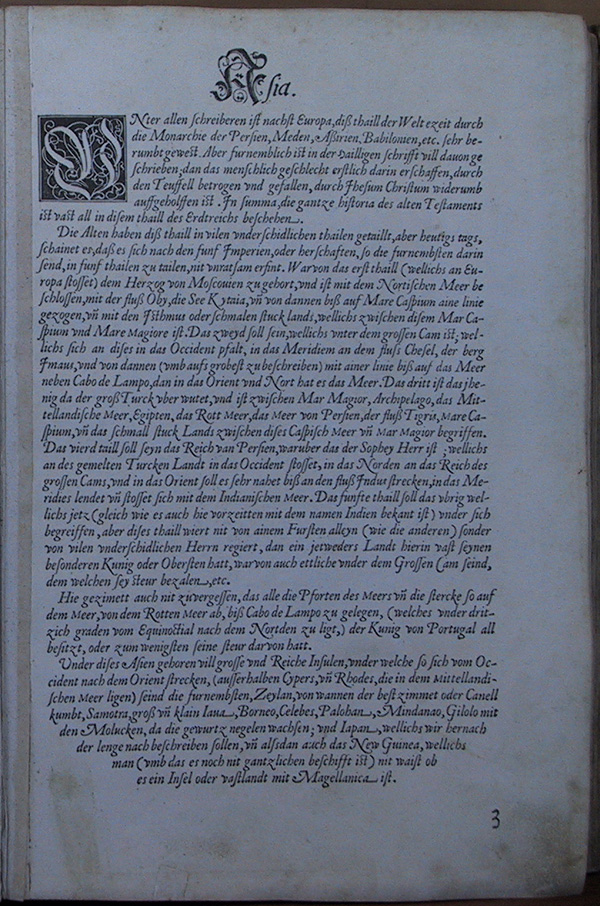 Asia.
VNter allen schreiberen ist nachst Europa, diß thaill der Welt ezeit durch
die Monarchie der Persien, Meden, Aßirien, Babilonien, etc. sehr be-
rumbt gewest. Aber furnemblich ist in der hailligen schrifft vill dauon ge
schrieben; dan das menschlich geschlecht erstlich darin erschaffen, durch
den Teuffell betrogen vnd gefallen, durch Jhesum Christium widerumb
auffgeholffen ist. Jn summa, die gantze historia des alten Testaments
ist vast all in disem thaill des Erdtreichs beschehen.
Die Alten haben diß thaill in vilen vnderschidlichen thailen getaillt, aber heutigs tags,
schainet es, daß es sich nach den funf Jmperien, oder herschaften, so die furnembsten darin
send, in funf thailen zu tailen, nit vnratsam erfint. Warvon das erst thaill (wellichs an Eu-
ropa stosset) dem Herzog von Moscouien zugehort, vnd ist mit dem Nortischen Meer be
schlossen, mit der fluß Oby, die See Kytaia, vn̄ von dannen biß auf Mare Caspium aine linie
gezogen, vn̄ mit den Jsthmus oder schmalen stuck lands, wellichs zwischen disem Mar Ca-
spium vnd Mare Magiore ist. Das zweyd soll sein, wellichs vnter dem grossen Cam ist; wel-
lichs sich an dises in das Occident pfalt, in das Meridiem an dem fluss Chesel, der berg
Jmaus, vnd von dannen (vmb aufs grobest zu beschreiben) mit ainer linie biß auf das Meer
neben Cabo de Lampo, dan in das Orient vnd Nort hat es das Meer. Das dritt ist das jhe-
nig da der groß Turck vber wutet, vnd ist zwischen Mar Magior, Archipelago, das Mit-
tellandische Meer, Egipten, das Rott Meer, das Meer von Persien, der fluß Tigris, Mare Ca-
spium, vn̄ das schmall stuck Lands zwischen dises Caspisch Meer vn̄ Mar Magior begriffen.
Das vierd taill soll seyn das Reich van Persien, waruber das der Sophey Herr ist; wellichs
an des gemelten Turcken Landt in das Occident stosset, in das Norden an das Reich des
grossen Cams, vnd in das Orient soll es sehr nahet biß an den fluß Jndus strecken, in das Me-
ridies lendet vn̄ stosset sich mit dem Indianischen Meer. Das funfte thaill soll das vbrig wel-
lichs jetz (gleich wie es auch hie vorzeitten mit dem namen Indien bekant ist) vnder sich
begreiffen, aber dises thaill wiert nit von ainem Fursten alleyn (wie die anderen) sonder
von vilen vnderschidlichen Herrn regiert, dan ein jetweders Landt hierin vast seynen
besonderen Kunig oder Obersten hatt, warvon auch ettliche vnder dem Grossen Cam seind,
dem welchen sey steur bezalen, etc.
Hie gezimett auch nit zuvergessen, das alle die Pforten des Meers vn̄ die stercke so auf
dem Meer, von dem Rotten Meer ab, biß Cabo de Lampo zu gelegen, (welches vnder drit-
zich graden vom Equinoctial nach dem Nortden zu ligt,) der Kunig von Portugal all
besitzt, oder zum wenigsten seine steur darvon hatt.
Under dises Asien gehoren vill grosse vnd Reiche Insulen, vnder welche so sich vom Oc-
cident nach dem Orient strecken, (ausserhalben Cypers, vn̄ Rhodes, die in dem Mittellandi-
schen Meer ligen) seind die furnembsten, Zeylan, von wannen der best zimmet oder Canell
kumbt, Samotra, groß vn̄ klain Iaua, Borneo, Celebes, Palohan, Mindanao, Gilolo mit
den Molucken, da die gewurtz negelen wachsen; vnd Iapan, wellichs wir hernach
der lenge nach beschreiben sollen, vn̄ alssdan auch das New Guinea, wellichs
man (vmb das es noch nit gantzlichen beschifft ist) nit waist ob
es ein Insel oder vastlandt mit Magellanica ist.
3